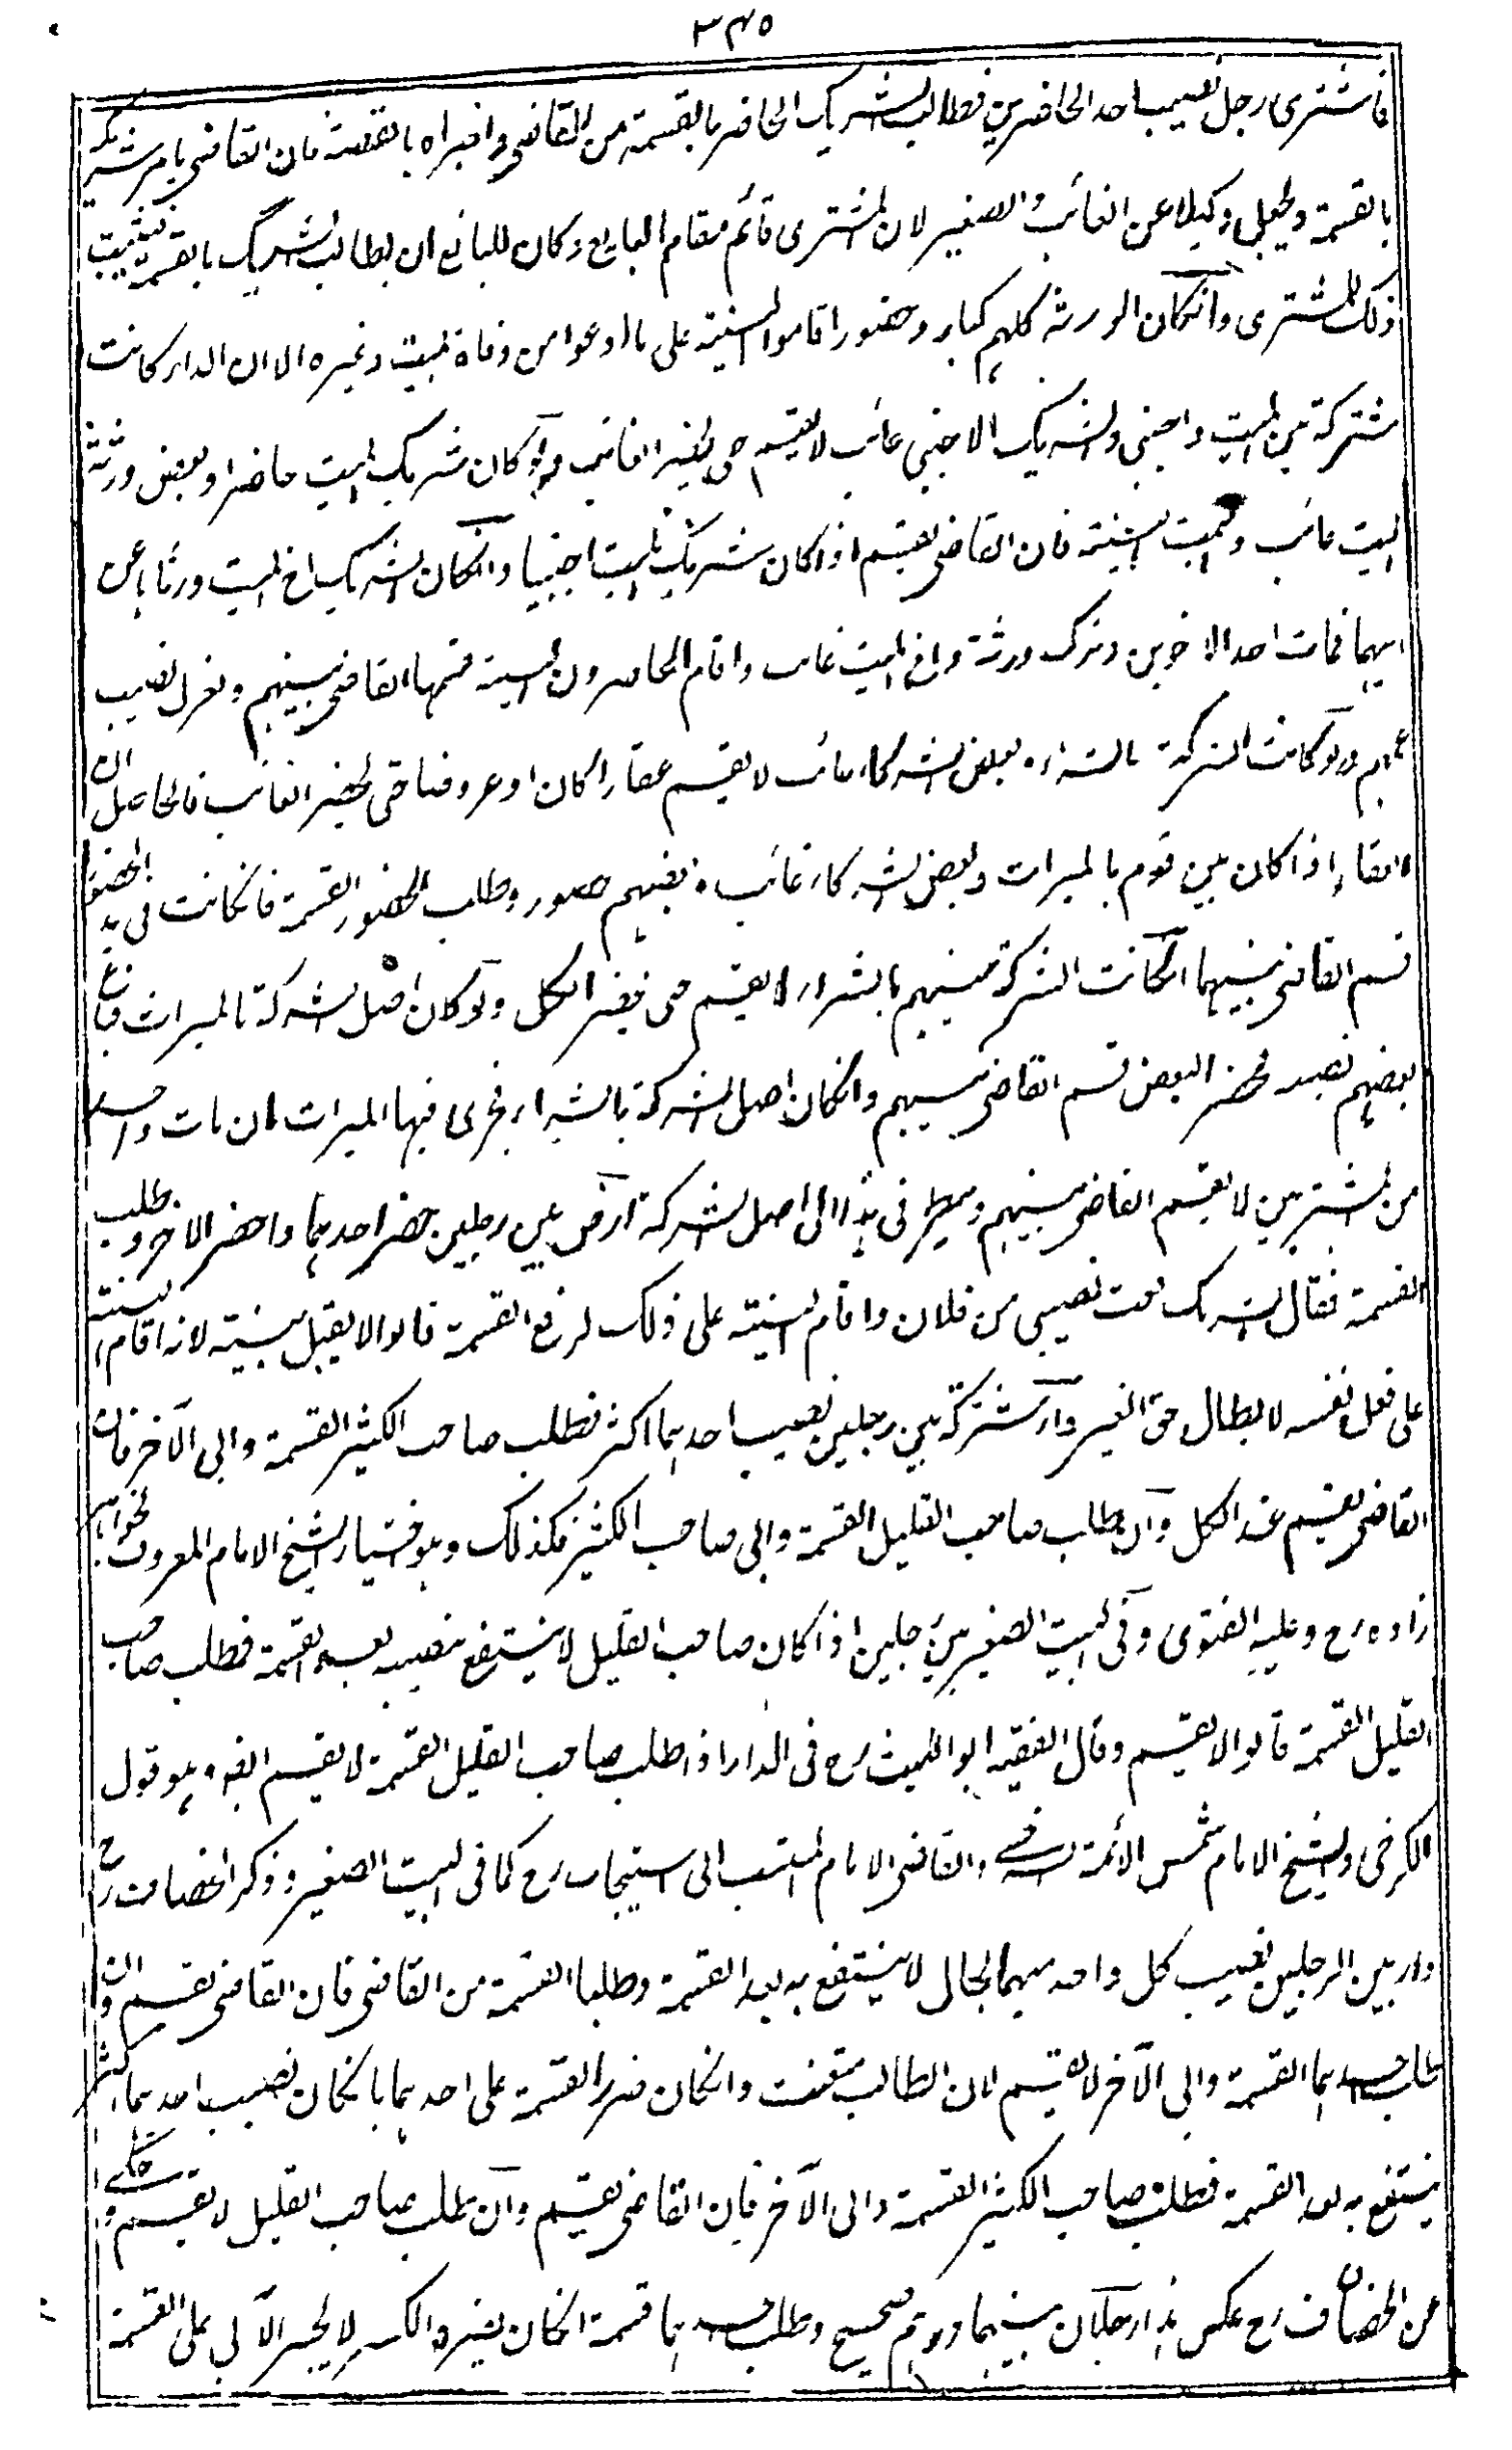 ٣٤٥
فاشترى رجل نصيب احد الحاضرين فطالب الشريك الحاضر بالقسمة من القاضي واخبراه بالقصة فان القاضي يامر شريكه
بالقسمة ويجعل وكيلا عن الغائب والصغير لان المشترى قائم مقام البايع وكان للبائع ان يطالب الشريك بالقسمة فيثبت
ذلك للمشترى وانكان الورثة كلهم كبار وحضور اقاموا البينة على ما ادعوا من وفاة الميت وغيره الا ان الدار كانت
مشتركة بين الميت واجنبي والشريك الاجنبي غائب لا يقسم حتى يحضر الغائب ولو كان شريك الميت حاضرا وبعض ورثة
الميت غائب وقيمت البينة فان القاضي يقسم اذا كان شريك الميت اجنبيا وانكان الشريك اخ الميت ورثاها عن
ابيهما فمات احد الاخوين وترك ورثة واخ الميت غائب واقام الحاضرون البينة قسمها القاضي بينهم وعزل نصيب
عمهم ولو كانت الشركة بالشراء وبعض الشركاء غائب لا يقسم عقارا كان او عروضا حتى يحضر الغائب فالحاصل ان
العقار اذا كان بين قوم بالميراث وبعض الشركاء غائب وبعضهم حضور وطلب الحضور القسمة فانكانت في يد الحضور
قسم القاضي بينهما انكانت الشركة بينهم بالشراء لا يقسم حتى يحضر الكل ولو كان اصل الشركة بالميراث فباع
بعضهم نصيبه فحضر البعض قسم القاضي بينهم وانكان اصل الشركة بالشراء فجرى فيها الميراث بان مات واحد
من المشتريين لا يقسم القاضي بينهم وينظر في هذا الى اصل الشركة ارض بين رجلين حضر احدهما واحضر الاخر وطلب
القسمة فقال الشريك بعت نصيبي من فلان واقام البينة على ذلك لدفع القسمة قالوا لا يقبل بينته لانه اقام البينة
على فعل نفسه لابطال حق الغير دار مشتركة بين رجلين نصيب احدهما اكثر فطلب صاحب الكثير القسمة وابى الآخر فان
القاضي يقسم عند الكل وان طلب صاحب القليل القسمة وابى صاحب الكثير فكذلك وهو اختيار الشيخ الامام المعروف بخواهر
زاده رح وعليه الفتوى وفي البيت الصغير بين رجلين اذا كان صاحب القليل لا ينتفع بنصيبه بعد القسمة فطلب صاحب
القليل القسمة قالوا لا يقسم وقال الفقيه ابو الليث رح في الدار اذا طلب صاحب القليل القسمة لا يقسم ايضا وهو قول
الكرخي والشيخ الامام شمس الأئمة السرخسي والقاضي الامام المنتسب الى اسبيجاب رح كما في البيت الصغير وذكر الخصاف رح
دار بين الرجلين نصيب كل واحد منهما بحال لا ينتفع به بعد القسمة وطلبا القسمة من القاضي فان القاضي يقسم وان
طلب احدهما القسمة وابى الآخر لا يقسم لان الطالب متعنت وانكان ضرر القسمة على احدهما بانكان نصيب احدهما اكثر
ينتفع به بعد القسمة فطلب صاحب الكثير القسمة وابى الآخر فان القاضي يقسم وان طلب صاحب القليل لا يقسم وحكي
عن الخصاف رح عكس هذا رجلان بينهما درهم صحيح وطلب احدهما قسمة انكان يضره الكسر لا يجبر الآبي على القسمة